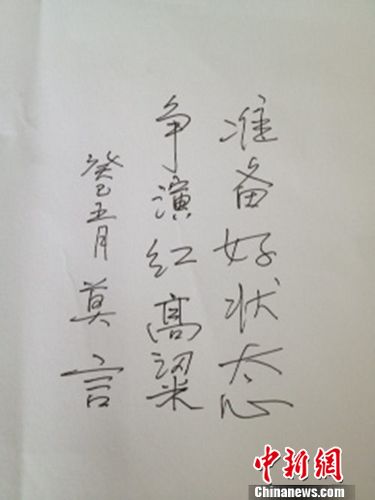 准备好状态
争演红高粱
癸巳五月 莫言
中新网
Chinanews.com